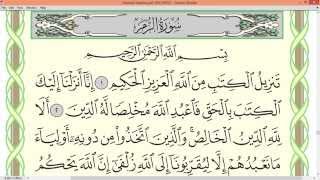 سُورَةُ الزُّمَرِ
بِسْمِ اللَّهِ الرَّحْمَٰنِ الرَّحِيمِ
تَنزِيلُ ٱلْكِتَٰبِ مِنَ ٱللَّهِ ٱلْعَزِيزِ ٱلْحَكِيمِ ١ إِنَّآ أَنزَلْنَآ إِلَيْكَ
ٱلْكِتَٰبَ بِٱلْحَقِّ فَٱعْبُدِ ٱللَّهَ مُخْلِصًا لَّهُ ٱلدِّينَ ٢ أَلَا
لِلَّهِ ٱلدِّينُ ٱلْخَالِصُ وَٱلَّذِينَ ٱتَّخَذُوا۟ مِن دُونِهِۦٓ أَوْلِيَآءَ
مَا نَعْبُدُهُمْ إِلَّا لِيُقَرِّبُونَآ إِلَى ٱللَّهِ زُلْفَىٰٓ إِنَّ ٱللَّهَ يَحْكُمُ